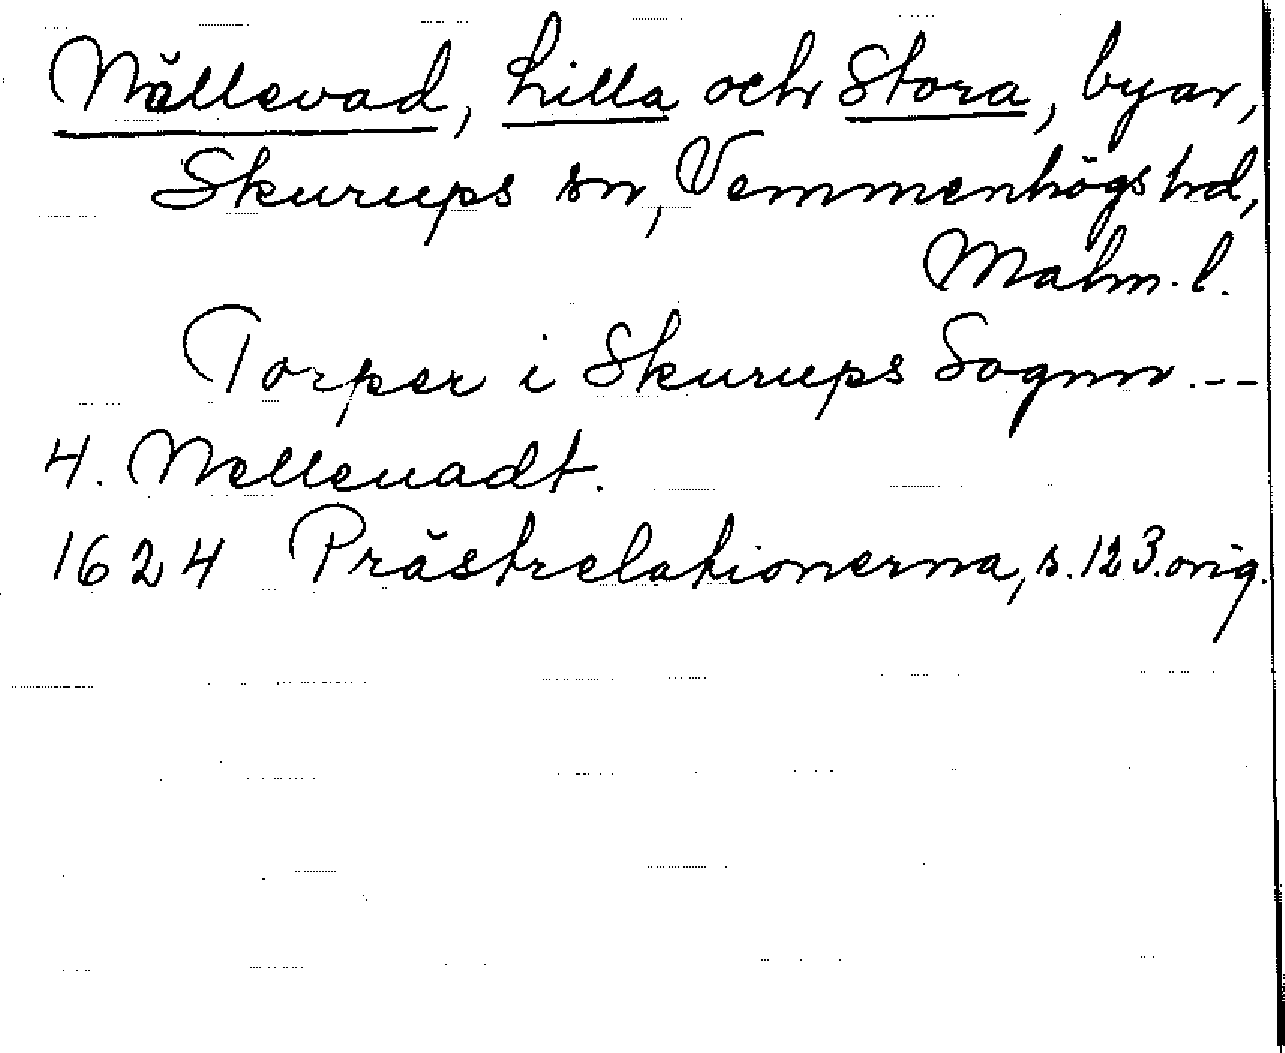 Nällevad, Lilla och Stora, byar,
Skurups sn, Vemmenhögs hd,
Malm. l.
Torper i Skurups Sognn. --
4. Nelleuadt.
1624 Prästrelationerna, s. 123. orig.